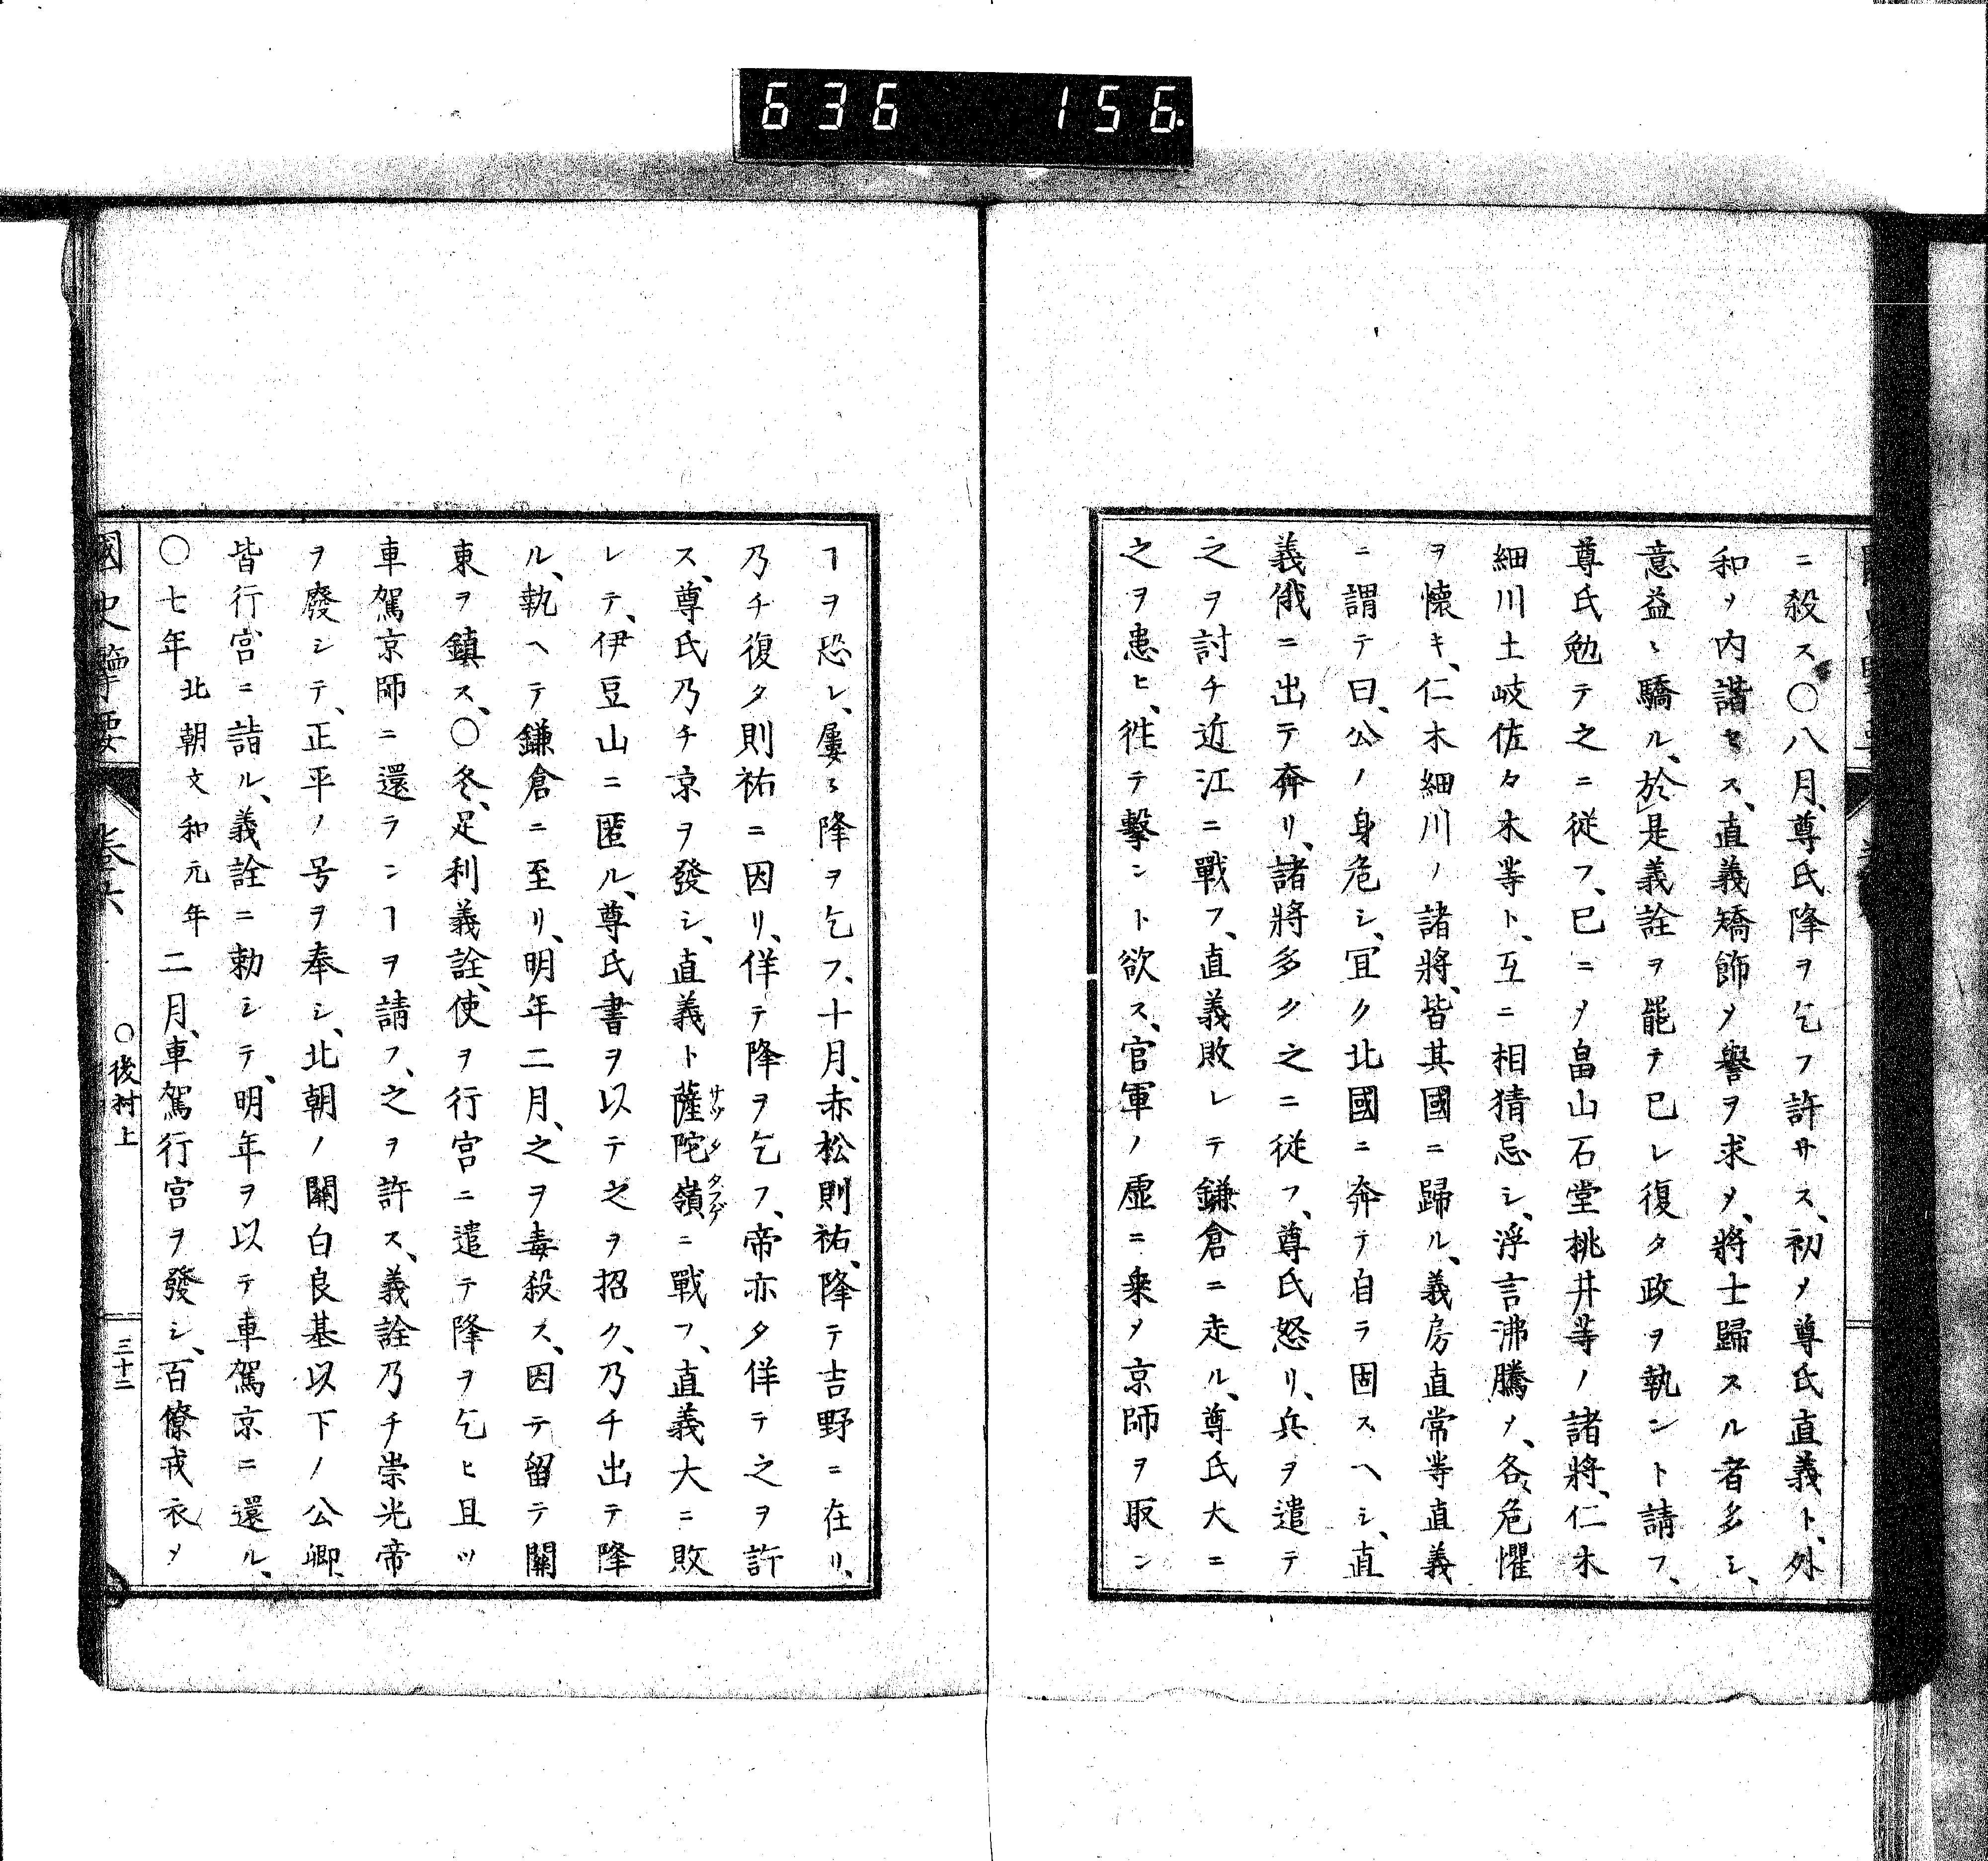 636 156
ニ殺ス〇八月、尊氏降ヲ乞フ許サス、初メ尊氏直義ト、外
和ノ内諧セス、直義矯飾メ譽ヲ求メ、將士歸スル者多シ、
意益〻驕ル、於是義詮ヲ罷テ已レ復タ政ヲ執ント請フ、
尊氏勉テ之ニ従フ、已ニメ畠山石堂桃井等ノ諸將、仁木
細川土岐佐々木等ト、互ニ相猜忌シ、浮言沸騰メ、各〻危懼
ヲ懐キ、仁木細川ノ諸將、皆其國ニ歸ル、義房直常等直義
ニ謂テ曰、公ノ身危シ、冝ク北國ニ奔テ自ラ固スヘシ、直
義俄ニ出テ奔リ、諸將多ク之ニ従フ、尊氏怒リ、兵ヲ遣テ
之ヲ討チ近江ニ戰フ、直義敗レテ鎌倉ニ走ル、尊氏大ニ
之ヲ患ヒ、徃テ擊ント欲ス、官軍ノ虚ニ乗メ京師ヲ取ン
ヿヲ恐レ、屢〻降ヲ乞フ、十月、赤松則祐、降テ吉野ニ在リ、
乃チ復タ則祐ニ因リ、佯テ降ヲ乞フ、帝亦タ佯テ之ヲ許
ス、尊氏乃チ京ヲ發シ、直義ト薩陀嶺サツタタフゲニ戰フ、直義大ニ敗
レテ、伊豆山ニ匿ル、尊氏書ヲ以テ之ヲ招ク、乃チ出テ降
ル、執ヘテ鎌倉ニ至リ、明年二月、之ヲ毒殺ス、因テ留テ關
東ヲ鎮ス、〇冬、足利義詮、使ヲ行宮ニ遣テ降ヲ乞ヒ且ツ
車駕京師ニ還ランヿヲ請フ、之ヲ許ス、義詮乃チ崇光帝
ヲ廢シテ、正平ノ号ヲ奉シ、北朝ノ關白良基以下ノ公卿、
皆行宮ニ詣ル、義詮ニ勅シテ、明年ヲ以テ車駕京ニ還ル、
〇七年北朝文和元年二月、車駕行宮ヲ發シ、百僚戎衣メ
國史擥要 巻六 〇後村上 三十二